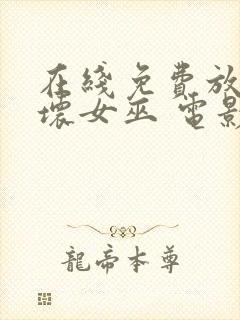 在綫免費放
壞女巫 電影
龍帝本尊